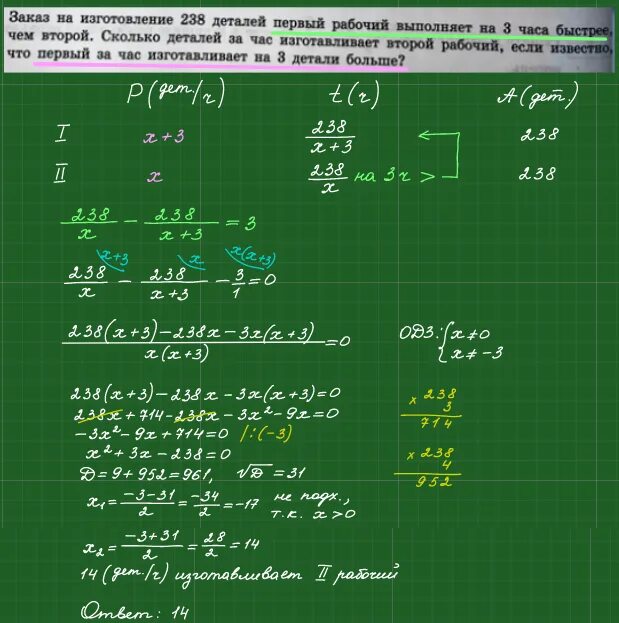 Заказ на изготовление 238 деталей первый рабочий выполняет на 3 часа быстрее,
чем второй. Сколько деталей за час изготавливает второй рабочий, если известно,
что первый за час изготавливает на 3 детали больше?
P (дет./ч) t (ч) A (дет.)
I x+3 238/(x+3) 238
II x 238/x на 3ч > 238
238/x − 238/(x+3) = 3
x+3 x x(x+3)
238/x − 238/(x+3) − 3/1 = 0
(238(x+3)−238x−3x(x+3))/(x(x+3)) = 0 ОДЗ: { x≠0
x≠−3
238(x+3)−238x−3x(x+3)=0 × 238
3
238x+714−238x−3x²−9x=0 714
−3x²−9x+714=0 |:(−3)
x²+3x−238=0 × 238
4
D=9+952=961, √D=31 952
x₁=(−3−31)/2=−34/2=−17 не подх.,
т.к. x>0
x₂=(−3+31)/2=28/2=14
14 (дет/ч) изготавливает II рабочий
Ответ: 14